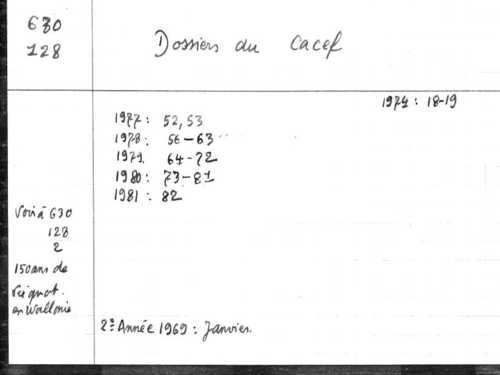 630
128
Dossiers du Cacef
1974 : 18-19
1977 : 52, 53
1978 : 56-63
1979. 64-72
1980 : 73-81
1981 : 82
Voir à 630
128
2
150 ans de
en Wallonie
2e Année 1969 : Janvier.